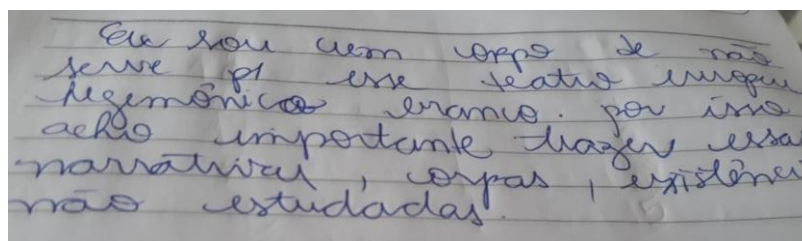 Eu sou uem corpo de não
serve p/ esse teatro europeu
hegemônico branco. por isso
acho importante trazer essa
narrativas, corpas, existênci
não estudadas.